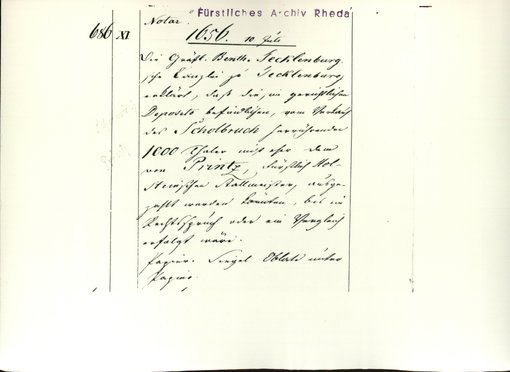 Notar.
Fürstliches Archiv Rheda
686 XI
1656. 10 Juli
Die Gräfl. Benth. Tecklenburg.
sche Canzlei zu Tecklenburg,
erklärt, daß die, im gerichtlichen
Deposito befindlichen, vom Verkauf
des Scholbruch herrührenden
1000 Thaler nicht eher dem
von Printz, Fürstlich Hol-
steinischen Stallmeister, ausge-
zahlt werden könnten, bis ein
Rechtsspruch oder ein Vergleich
erfolgt wäre.
Papier. Siegel Oblate unter
Papier.